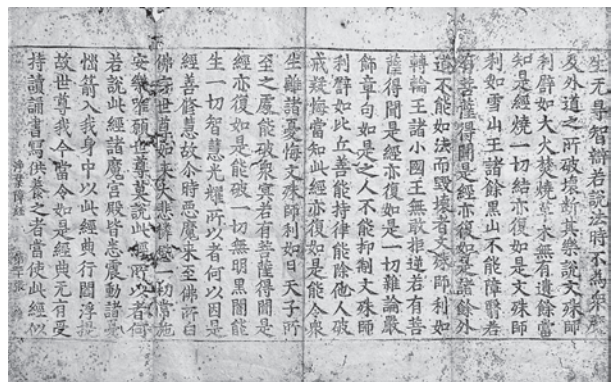 生无㝵智辯若說法時不為眾魔
及外道之所破壞斷其樂說文殊師
利譬如大火焚燒草木無有遺餘當
知是經燒一切結亦復如是文殊師
利如雪山王諸餘黑山不能障翳若
有菩薩得聞是經亦復如是諸餘外
道不能如法而毀壞者文殊師利如
轉輪王諸小國王無敢拒逆若有菩
薩得聞是經亦復如是一切雜論嚴
飾章句如是之人不能抑制文殊師
利譬如比丘善能持律能除他人破
戒疑悔當知此經亦復如是能令眾
生離諸憂悔文殊師利如日天子所
至之處能破眾冥若有菩薩得聞是
經亦復如是能破一切無明黑闇能
生一切智慧光耀所以者何以因是
經善修慧故尒時惡魔来至佛所白
佛言世尊如来大悲憐愍一切常施
安樂唯願世尊莫說此經所以者何
若說此經諸魔宮殿皆悉震動諸憂
惱箭入我身中以此經典行閻浮提
故世尊我今當令如是經典无有受
淨業障經
持讀誦書寫供養之者當使此經似